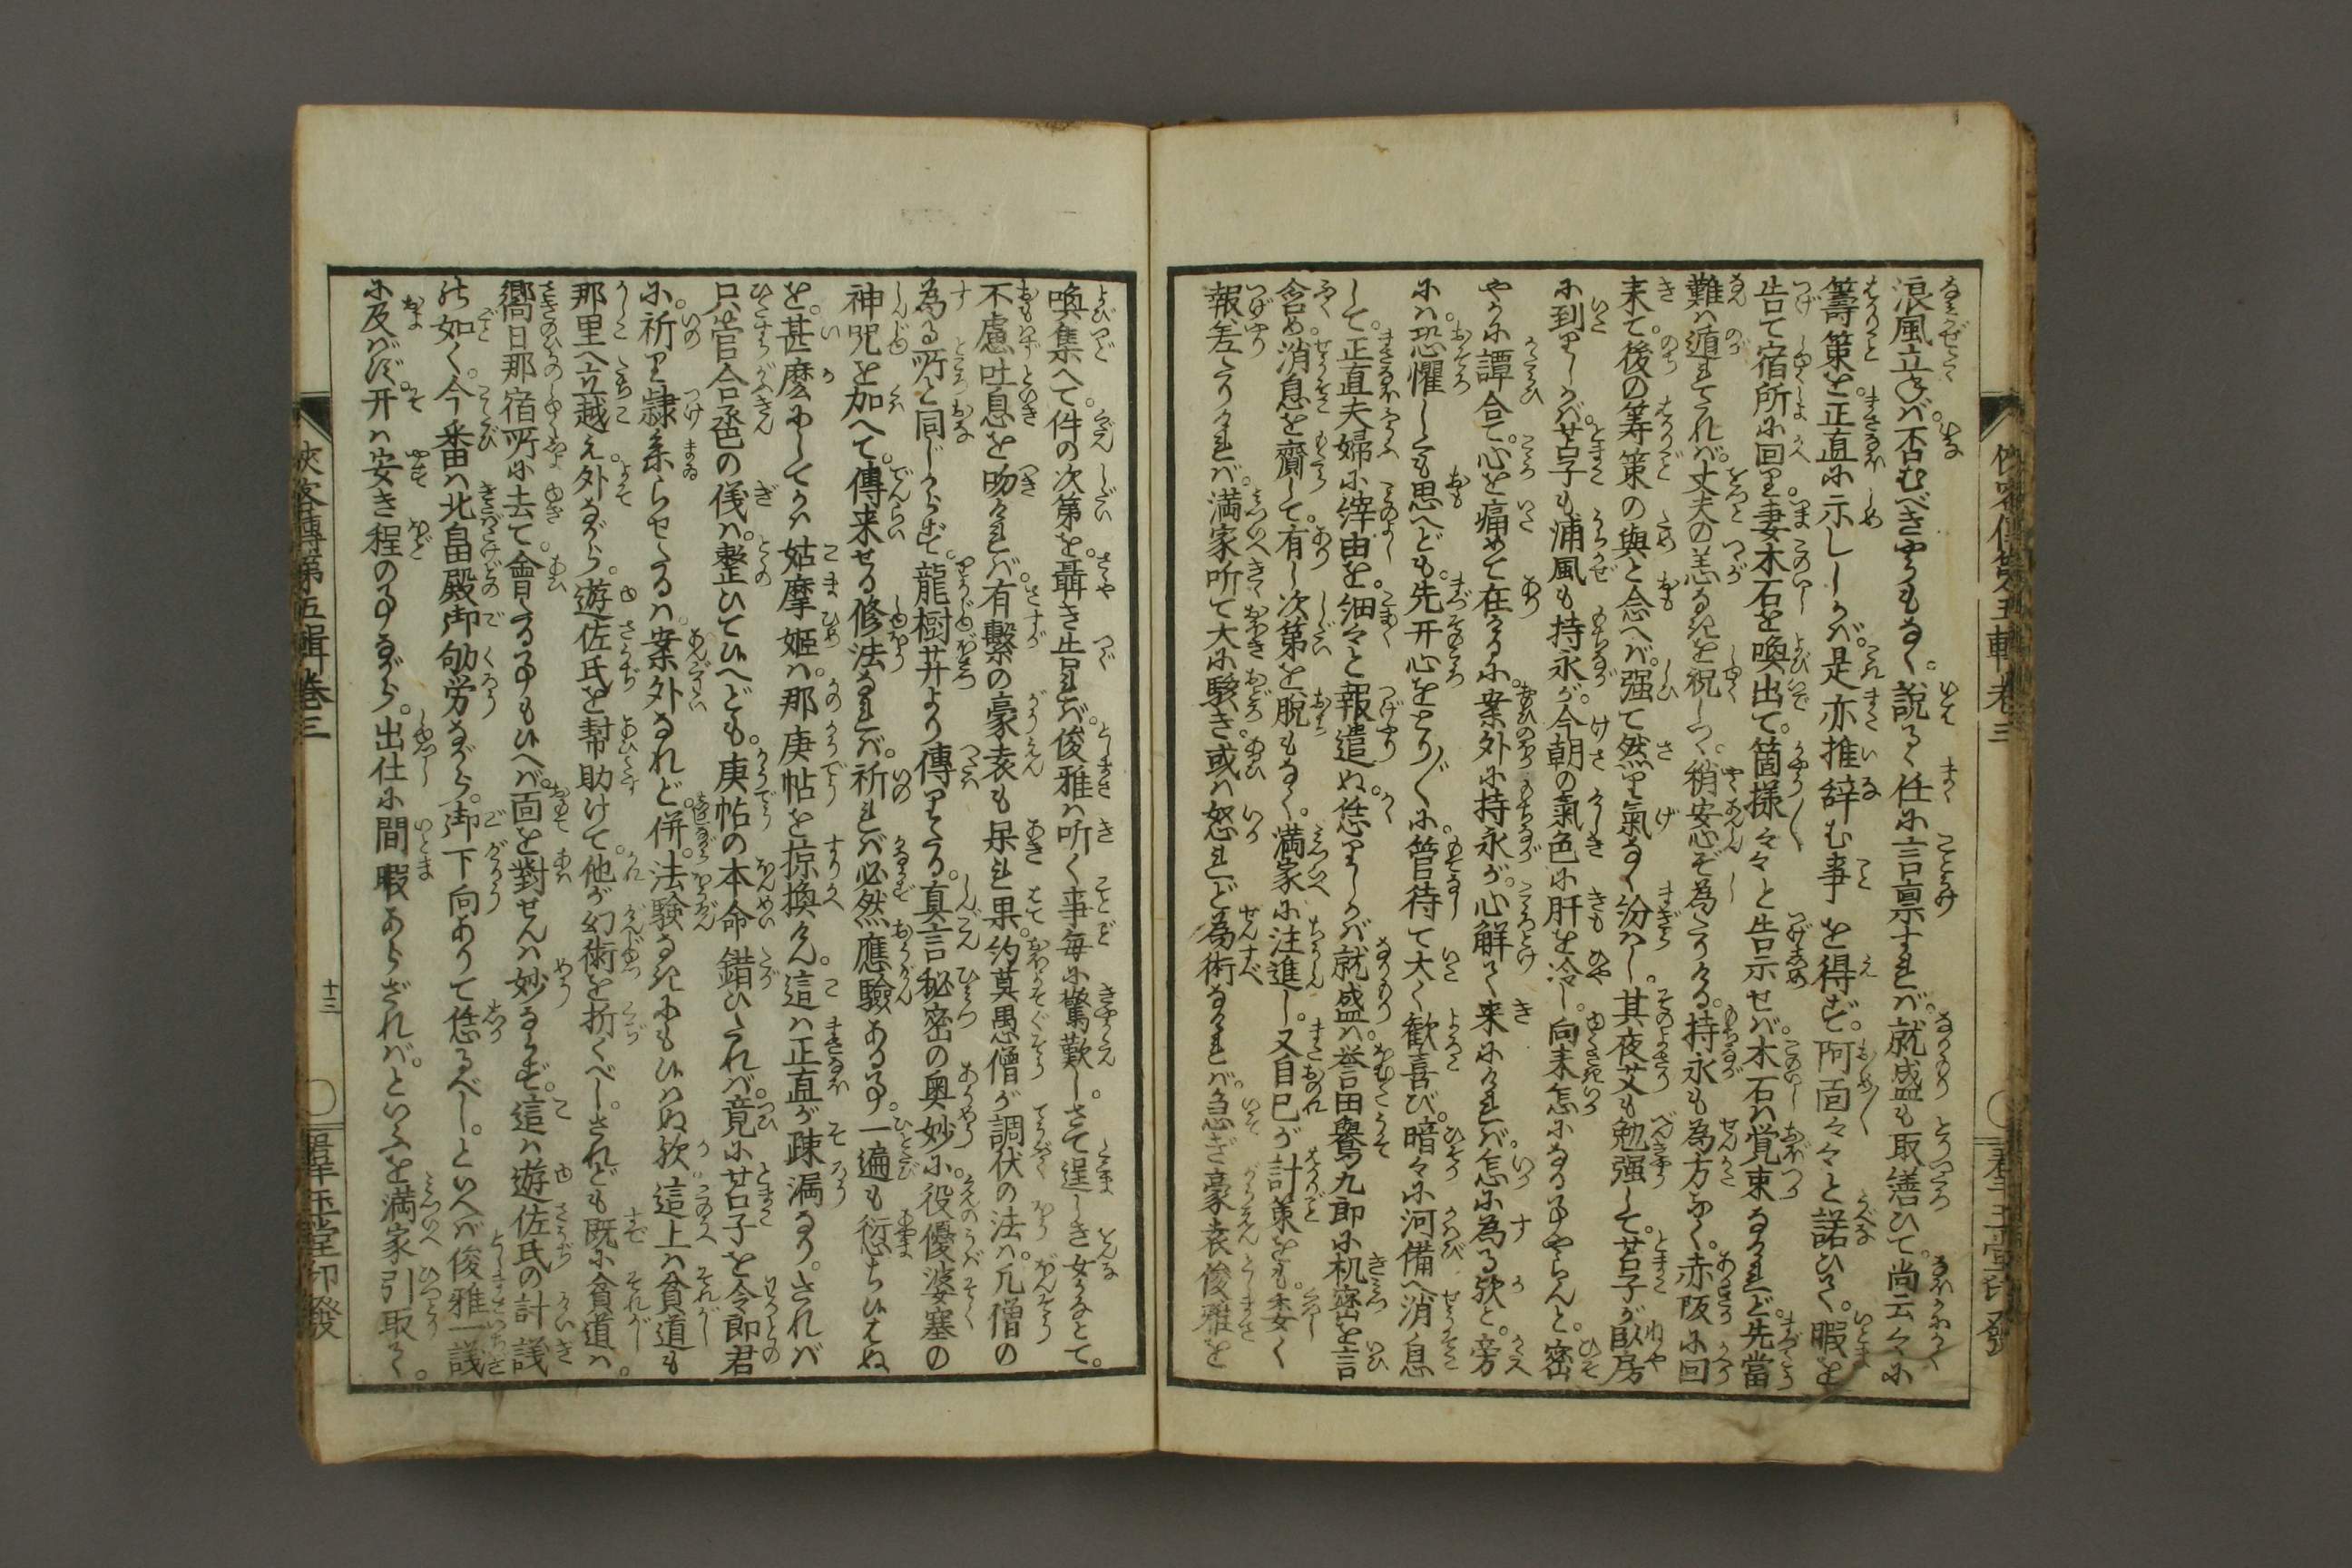 浪風立ねバ。否むべきやうもなく。説るゝ任に言稟すれバ。就盛も取繕ひて。尚云々に
籌策を。正直に示しゝかバ。是亦推辞む事を得ず。阿面々々と諾ひて。暇を
告て宿所に回り。妻木石を喚出て。箇様々々と告示せバ。木石ハ覚束なけれど。先當
難ハ遁れたれバ。丈夫の恙なきを祝しつゝ。稍安心ぞ為たりける。持永も為方なく。赤阪に回
来て。後の筭策の與と念へバ。强て然り氣なく汾ハし。其夜艾も勉强して。苫子が臥房
に到りしかバ。苫子も浦風も持永が。今朝の氣色に肝を冷し。向来怎になる事やらんと。密
やかに譚合て。心を痛めて在けるに。案外に持永が。心解て来にけれバ。怎に為る歟と。旁
にハ恐懼しくも思へども。先开心をとり〴〵に。管待て大く歓喜び。暗々に河備へ消息
して。正直夫婦に縡由を。細々と報遣ぬ。恁りしかバ就盛ハ。誉田礜九郎に机密を言
含め。消息を齎して。有し次第を脱もなく。満家に注進し。又自已が計策をも。委く
報差たりけれバ。満家听て大に駭き。或ハ怒れど為術なけれバ。急ぎ豪袁俊雅を
喚集へて。件の次第を。聶き告れバ。俊雅ハ听く事毎に驚歎し。さて逞しき女かなとて。
不慮吐息を吻けれバ。有繫の豪袁も呆れ果。約莫愚僧が調伏の法ハ。凡僧の
為る所と同じからず。龍樹井より傳りたる。真言秘密の奥妙に。役優婆塞の
神咒を加へて。傳来せる修法なれバ。祈れバ必然應驗ある事。一遍も愆ちひはぬ
を。甚麽にしてかハ姑摩姬ハ。那庚帖を掠換けん。這ハ正直が疎漏なり。されバ
只管合巹の儀ハ。整ひてひへども。庚帖の本命錯ひたれバ。竟に苫子を令郎君
に。祈り隷系らせたるハ。案外なれど。併。法驗なきにもひハぬ歟。這上ハ貧道も
那里へ立越え。外ながら。遊佐氏を幇助けて。他が幻術を折くべし。されども既に貧道ハ。
嚮日那宿所に去て。會たる事もひへバ。面を對せんハ妙ならず。這ハ遊佐氏の計議
の如く。今番ハ北畠殿御劬労ながら。御下向ありて恁るべし。といへバ俊雅一議
に及バず。开ハ安き程の事ながら。出仕に間暇あらざれバ。といふを満家引取て。
俠客傳第五輯卷三
十三
群玉堂印發